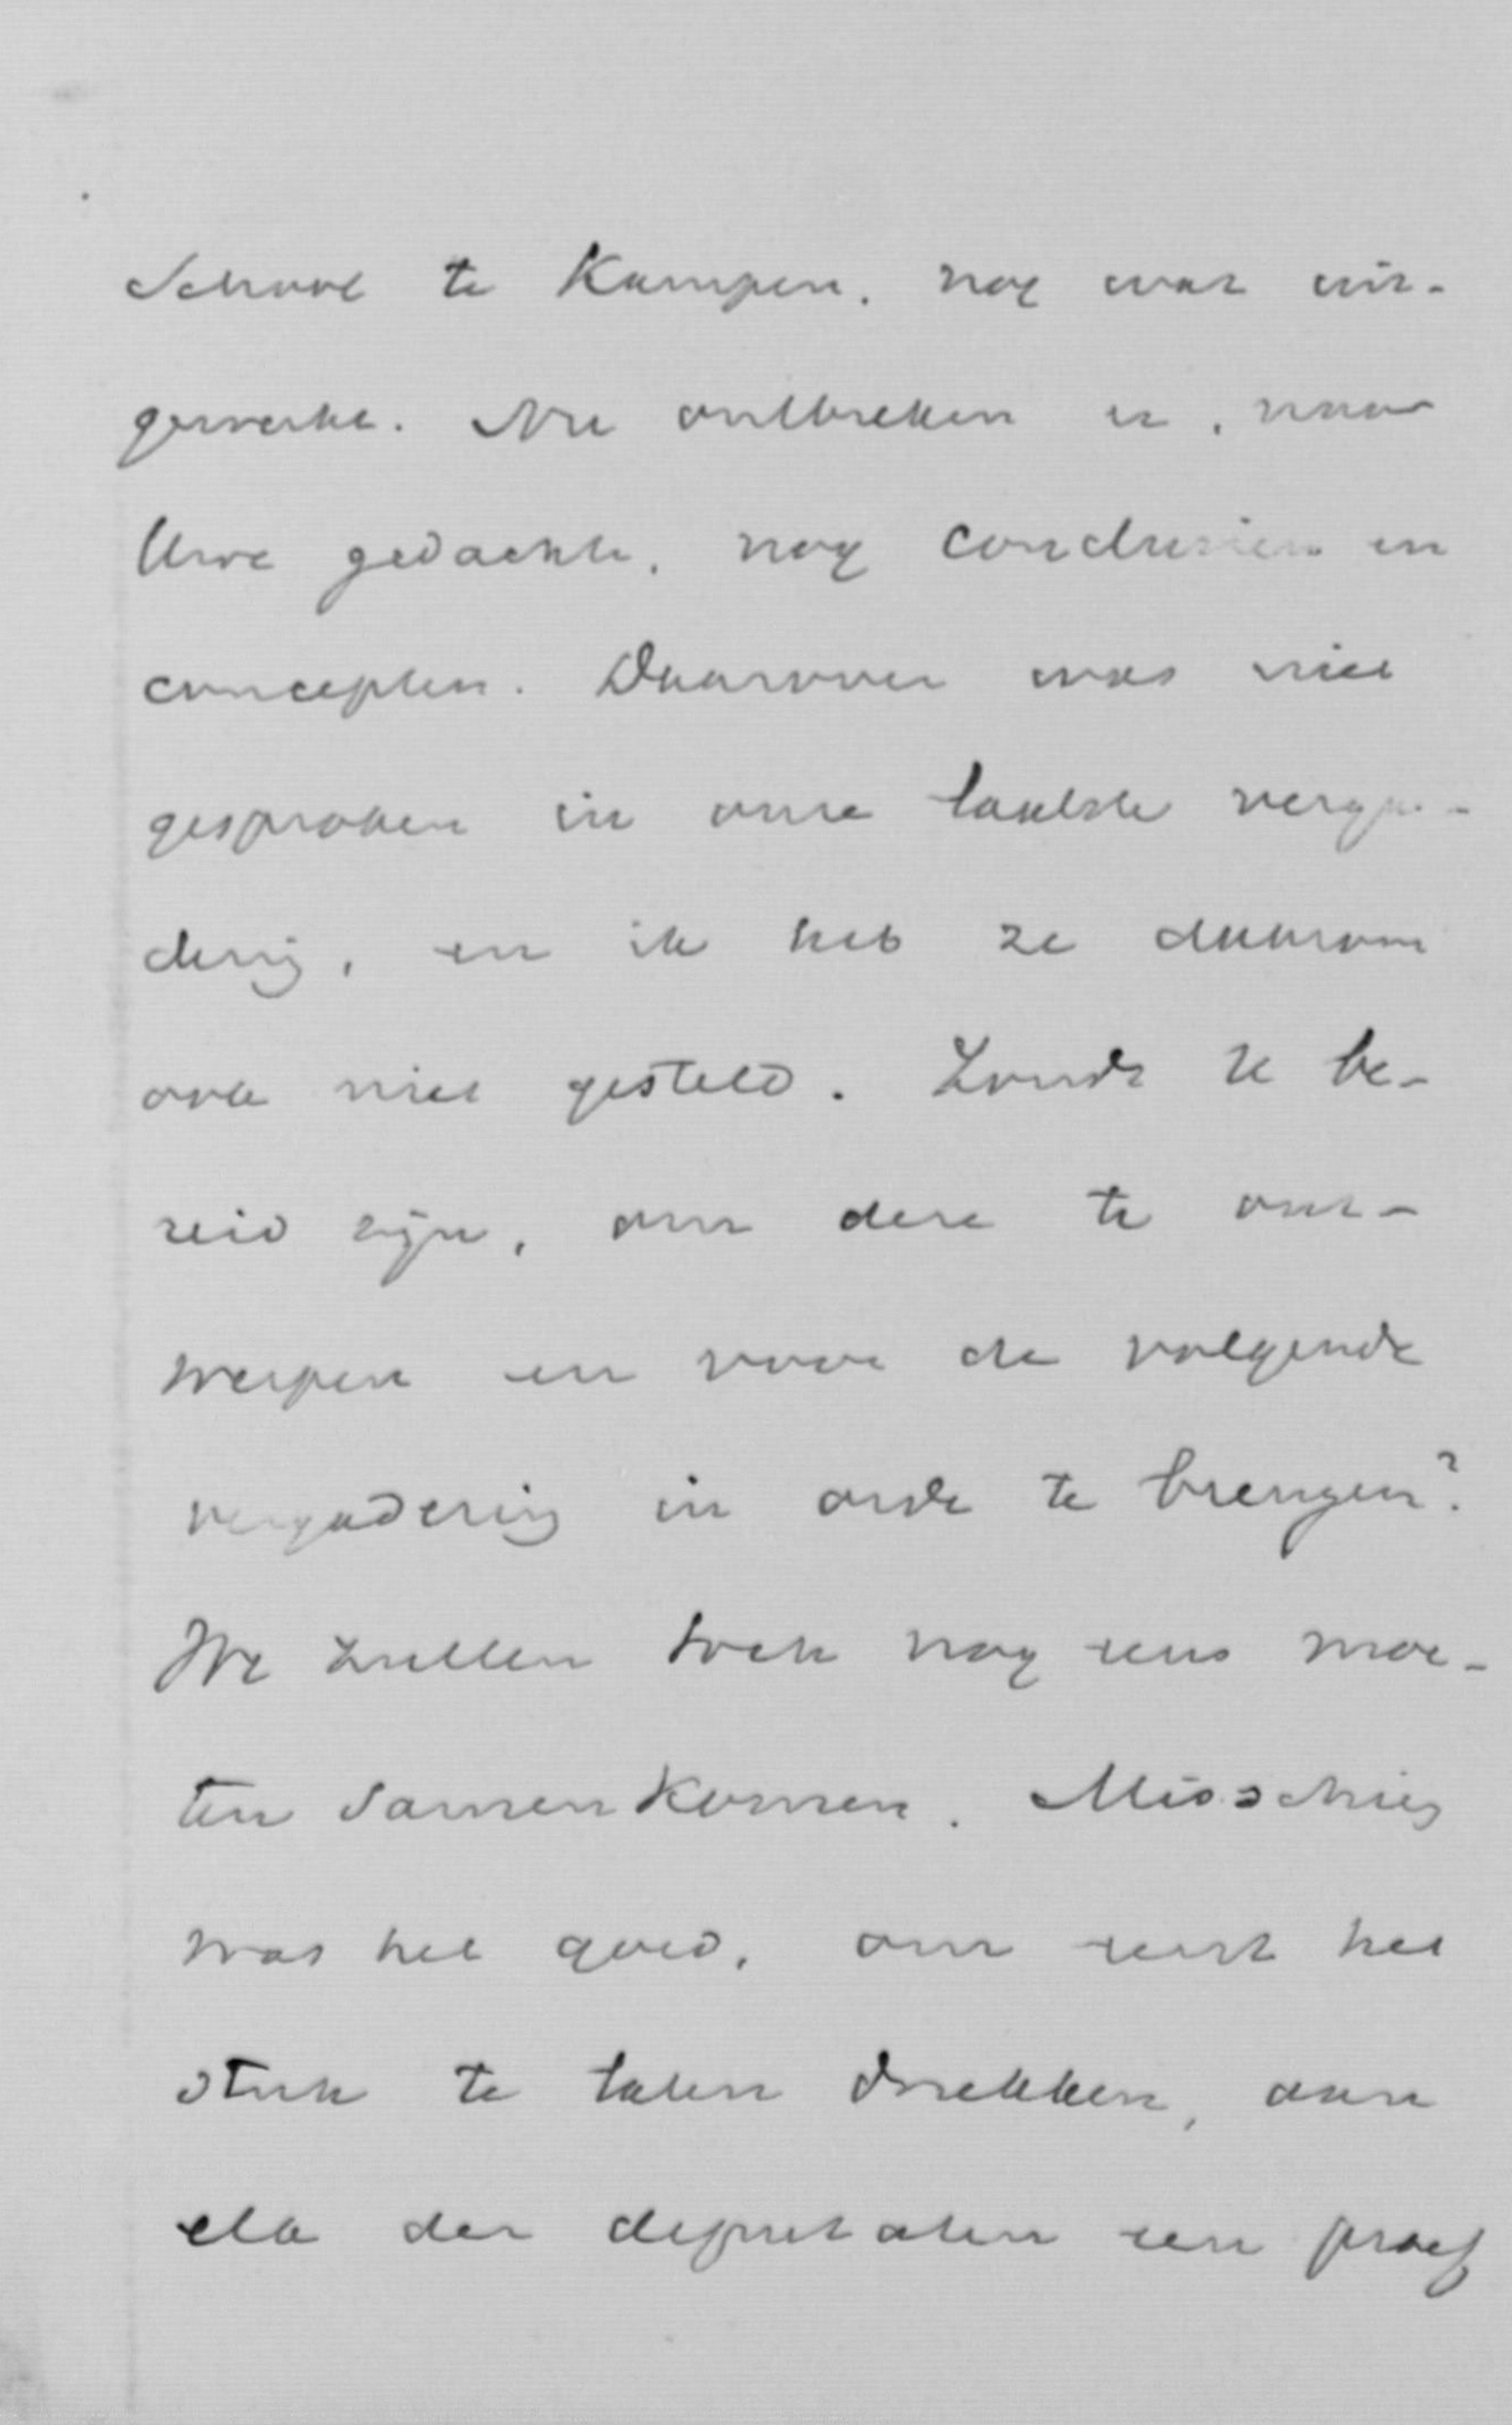 School te Kampen, nog wat uit-
gewerkt. Nu ontbreken er, naar
Uwe gedachte, nog conclusien en
concepten. Daarover was niet
gesproken in onze laatste verga-
dering, en ik heb ze daarom
ook niet gesteld. Zoudt U be-
reid zijn, om deze te ont-
werpen en voor de volgende
vergadering in orde te brengen?
We zullen toch nog eens moe-
ten samenkomen. Misschien
was het goed, om eerst het
stuk te laten drukken, aan
elk der deputaten een proef